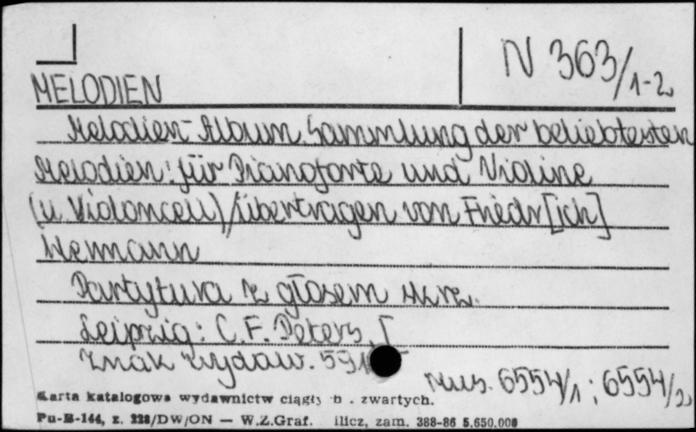 N 363/1-2
MELODIEN
Melodien-Album. Sammlung der beliebtesten
Melodien für Pianoforte und Violine
(u. Violoncell)/übertragen von Friedr[ich]
Hermann
Partytura z głosem skrz.
Leipzig: C. F. Peters, [
Znak wydaw. 591
Mus. 6554/1 ; 6554/2
Karta katalogowa wydawnictw ciągły zwartych.
Pu-B-144, z. 228/DW/ON — W.Z.Graf. ilicz, zam. 388-86 5.650.000